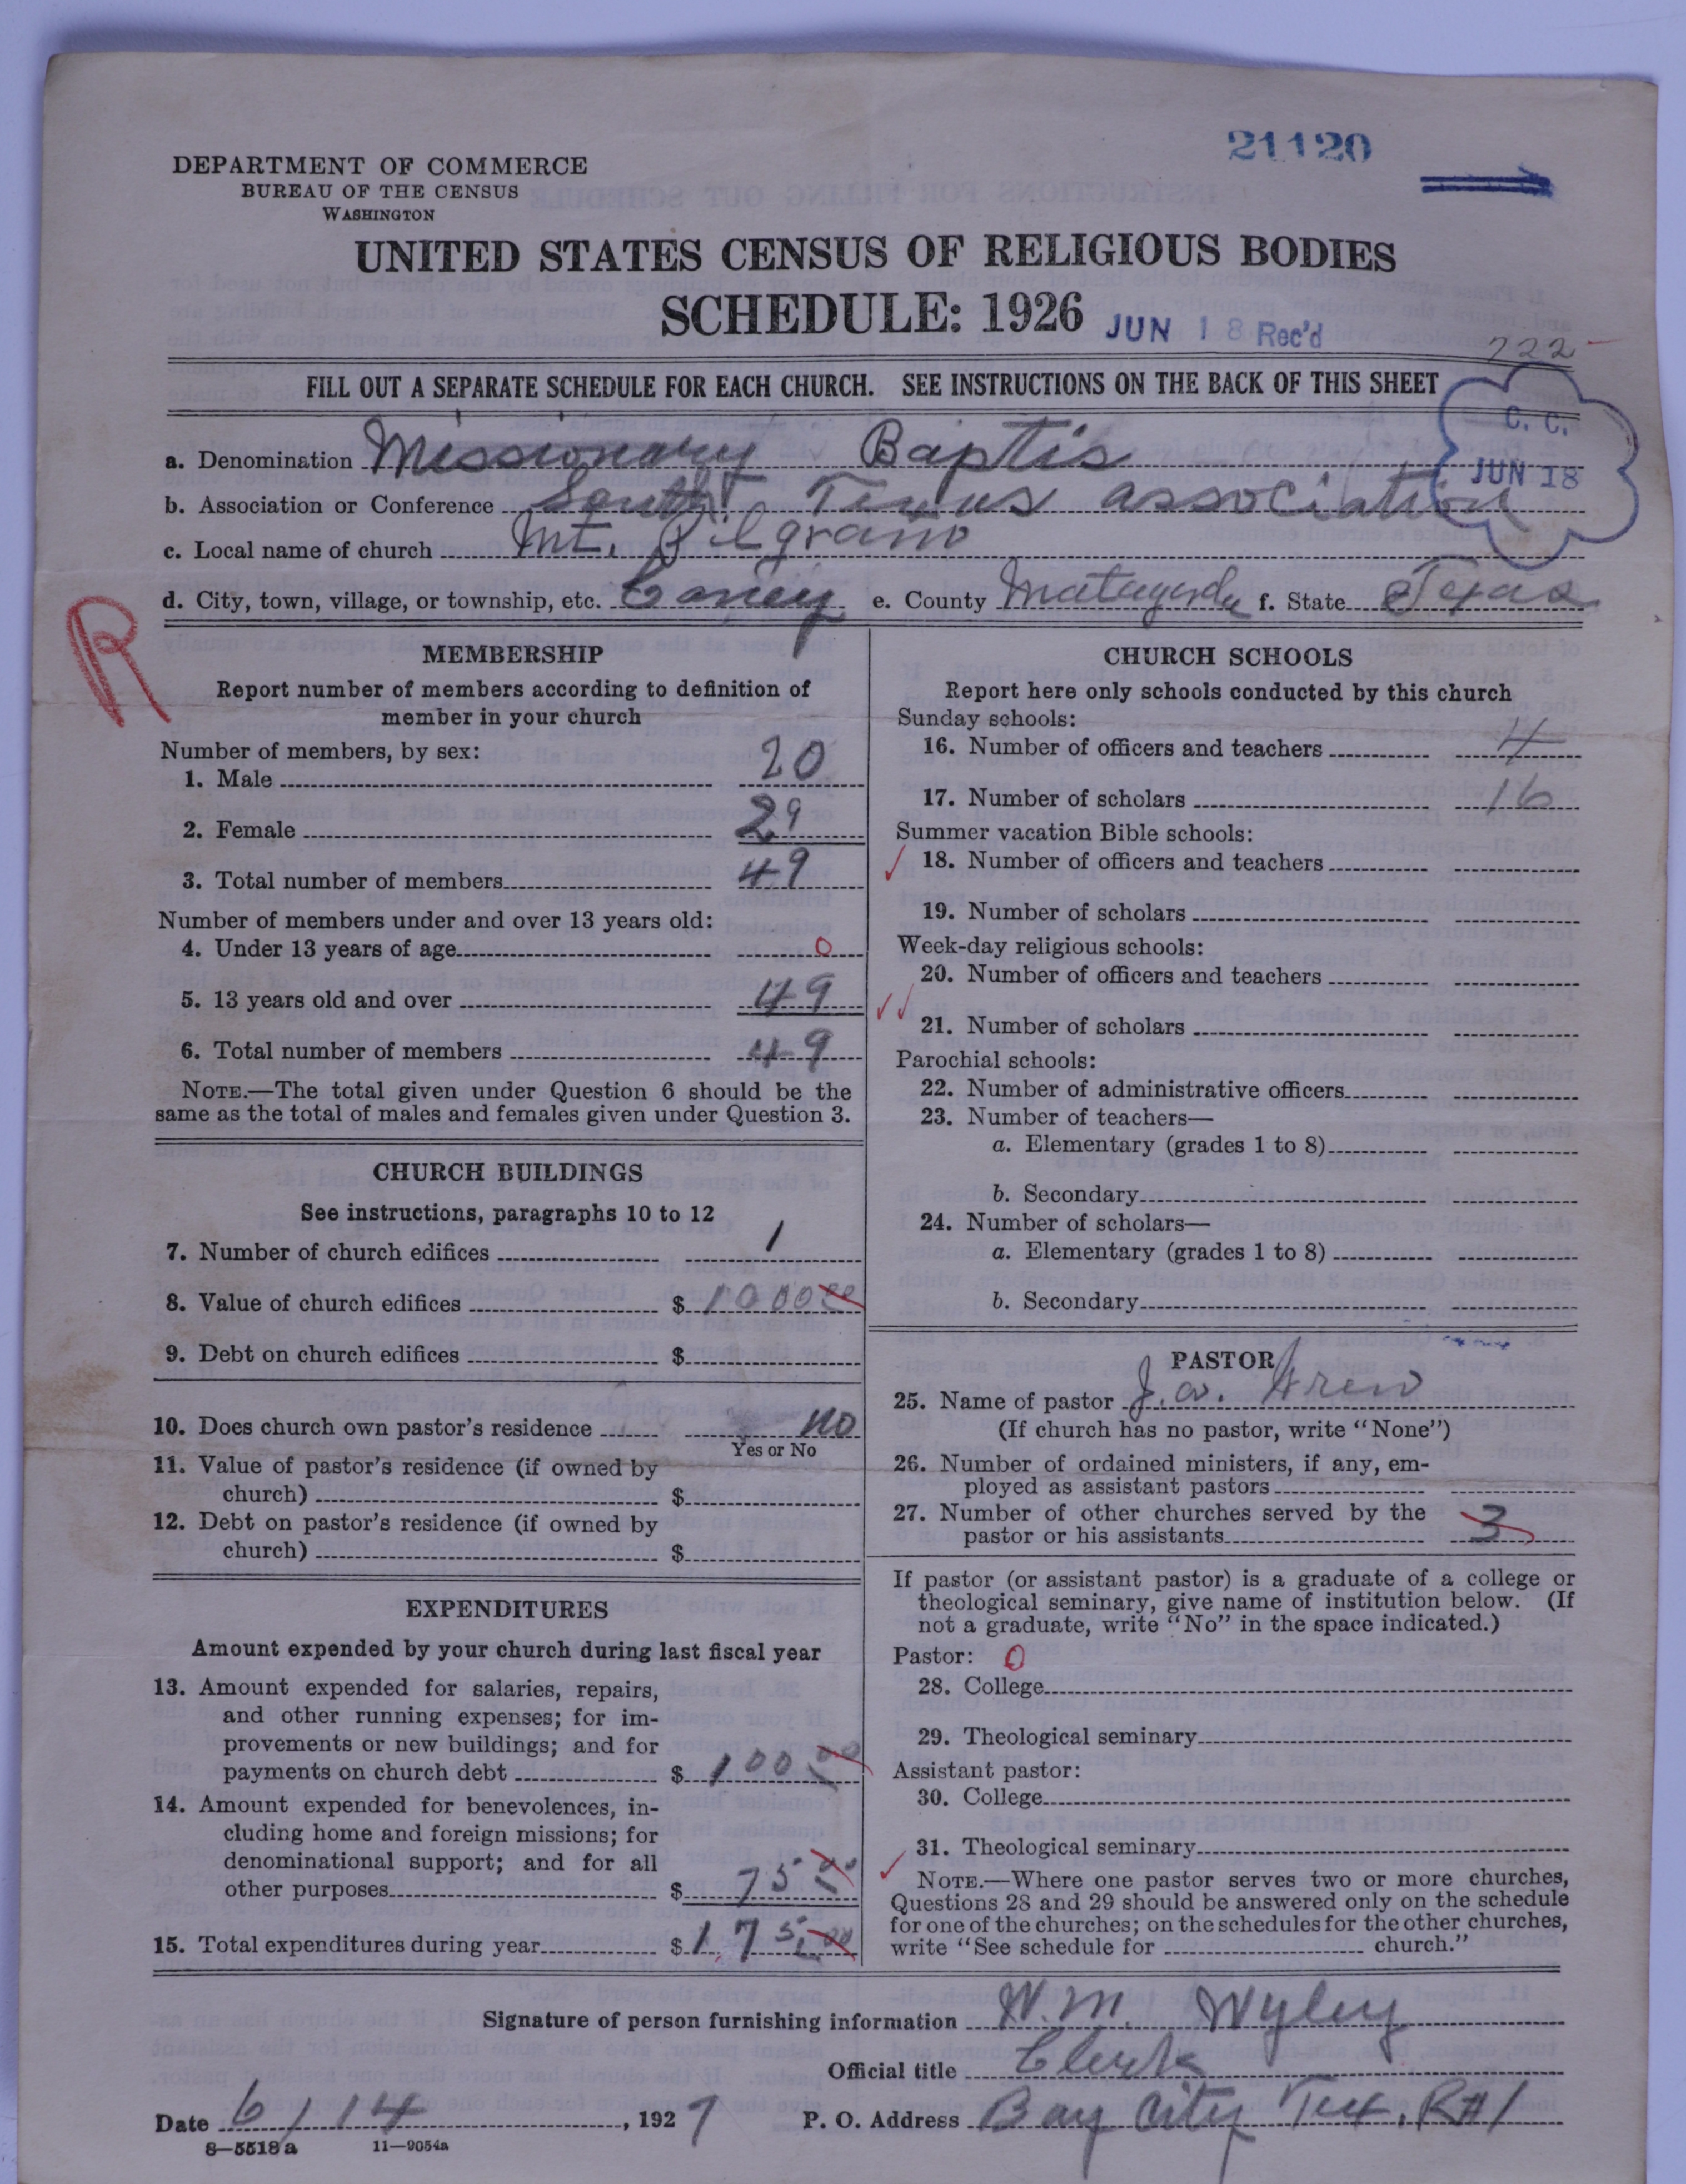 21120
DEPARTMENT OF COMMERCE
BUREAU OF THE CENSUS
WASHINGTON
UNITED STATES CENSUS OF RELIGIOUS BODIES
SCHEDULE: 1926
JUN 18 Rec'd
722
FILL OUT A SEPARATE SCHEDULE FOR EACH CHURCH. SEE INSTRUCTIONS ON THE BACK OF THIS SHEET
C. C.
JUN 18
a. Denomination Missionary Baptis
b. Association or Conference South Texas association
c. Local name of church Mt. Pilgraim
d. City, town, village, or township, etc. Caney e. County Matagorda f. State Texas
R
MEMBERSHIP
Report number of members according to definition of
member in your church
Number of members, by sex:
1. Male 20
2. Female 29
3. Total number of members 49
Number of members under and over 13 years old:
4. Under 13 years of age 0
5. 13 years old and over 49
6. Total number of members 49
NOTE.—The total given under Question 6 should be the
same as the total of males and females given under Question 3.
CHURCH BUILDINGS
See instructions, paragraphs 10 to 12
7. Number of church edifices 1
8. Value of church edifices $ 1000 00
9. Debt on church edifices $
10. Does church own pastor's residence no
Yes or No
11. Value of pastor's residence (if owned by
church) $
12. Debt on pastor's residence (if owned by
church) $
EXPENDITURES
Amount expended by your church during last fiscal year
13. Amount expended for salaries, repairs,
and other running expenses; for im-
provements or new buildings; and for
payments on church debt $ 100 00
14. Amount expended for benevolences, in-
cluding home and foreign missions; for
denominational support; and for all
other purposes $ 75 00
15. Total expenditures during year $ 175 00
CHURCH SCHOOLS
Report here only schools conducted by this church
Sunday schools:
16. Number of officers and teachers 4
17. Number of scholars 16
Summer vacation Bible schools:
18. Number of officers and teachers
19. Number of scholars
Week-day religious schools:
20. Number of officers and teachers
21. Number of scholars
Parochial schools:
22. Number of administrative officers
23. Number of teachers—
a. Elementary (grades 1 to 8)
b. Secondary
24. Number of scholars—
a. Elementary (grades 1 to 8)
b. Secondary
PASTOR
25. Name of pastor J. W.
(If church has no pastor, write "None")
26. Number of ordained ministers, if any, em-
ployed as assistant pastors
27. Number of other churches served by the
pastor or his assistants 3
If pastor (or assistant pastor) is a graduate of a college or
theological seminary, give name of institution below. (If
not a graduate, write "No" in the space indicated.)
Pastor: 0
28. College
29. Theological seminary
Assistant pastor:
30. College
31. Theological seminary
NOTE.—Where one pastor serves two or more churches,
Questions 28 and 29 should be answered only on the schedule
for one of the churches; on the schedules for the other churches,
write "See schedule for church."
Signature of person furnishing information W. M. Wyley
Official title Clerk
Date 6/14, 1927 P. O. Address Bay City Tex. R#1
8—5518 a 11—9054a